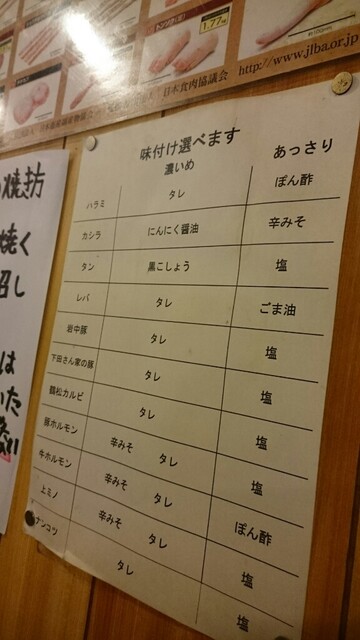 1.77
日本食肉協議会 http://www.jlba.or.jp
焼坊
焼く
召し
は
いた
味付け選べます
濃いめ あっさり
ハラミ タレ ぽん酢
カシラ にんにく醤油 辛みそ
タン 黒こしょう 塩
レバ タレ ごま油
岩中豚 タレ 塩
下田さん家の豚 タレ 塩
鶴松カルビ タレ 塩
豚ホルモン 辛みそ タレ 塩
牛ホルモン 辛みそ タレ ぽん酢
上ミノ 辛みそ タレ 塩
ナンコツ タレ 塩